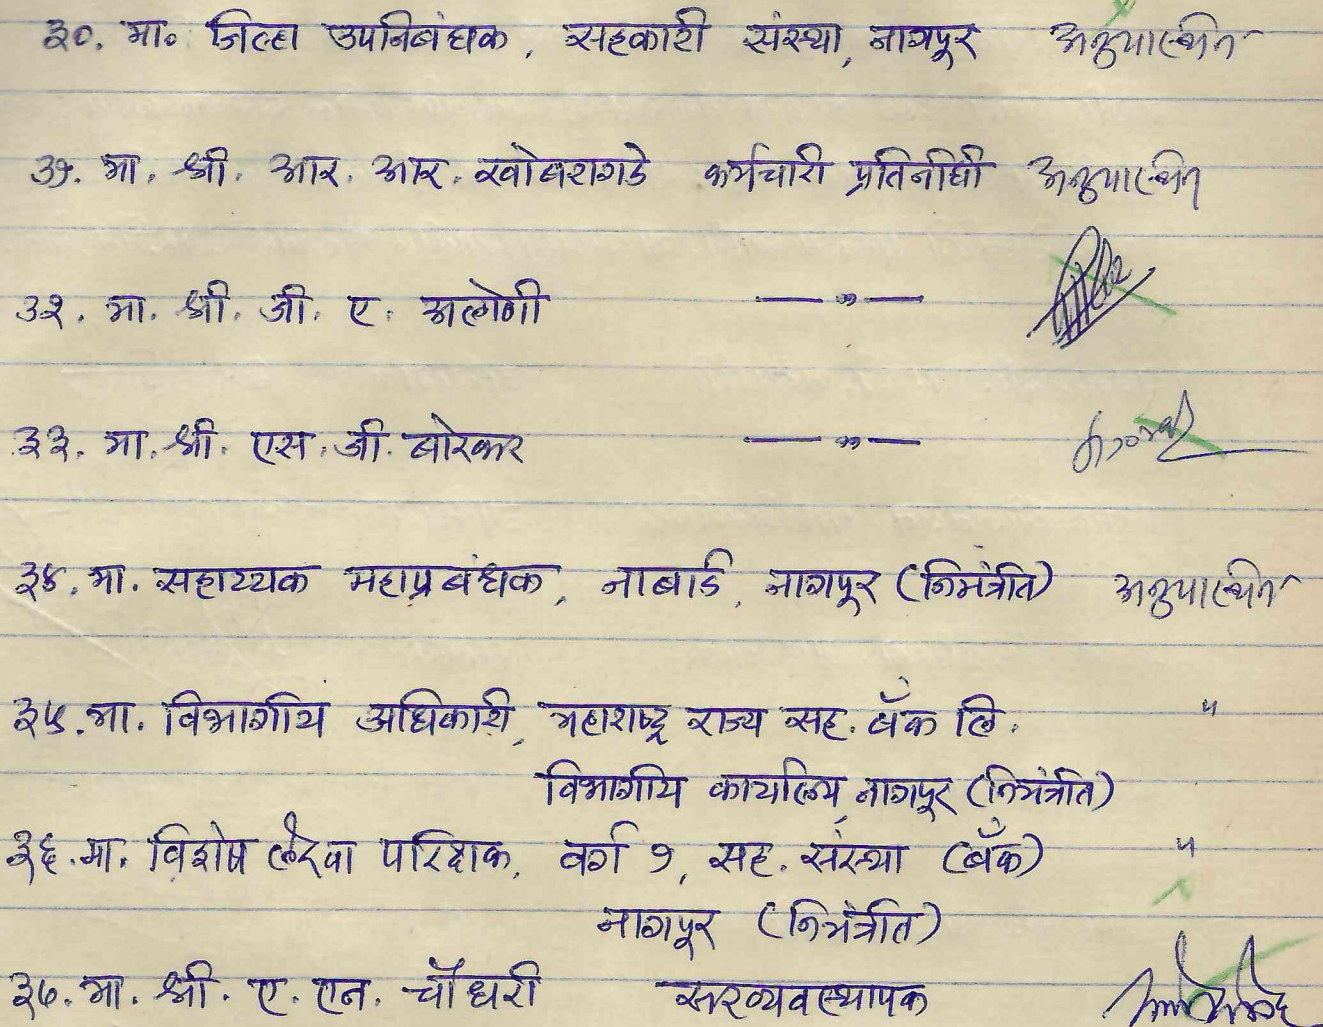 ३०. मा० जिल्हा उपनिबंधक, सहकारी संस्था, नागपूर अनुपास्थित
३१. मा. श्री. आर. आर. खोबरागडे कर्मचारी प्रतिनीधी अनुपास्थित
३२. मा. श्री. जी. ए. अलोणी —〃—
३३. मा. श्री. एस. जी. बोरकर —〃—
३४. मा. सहाय्यक महाप्रबंधक, नाबार्ड, नागपूर (निमंत्रीत) अनुपास्थित
३५. मा. विभागीय अधिकारी, महाराष्ट्र राज्य सह. बँक लि. 〃
विभागीय कार्यालय, नागपूर (निमंत्रीत)
३६. मा. विशेष लेखा परिक्षक, वर्ग १, सह. संस्था (बँक) 〃
नागपूर (निमंत्रीत)
३७. मा. श्री. ए. एन. चौधरी सरव्यवस्थापक